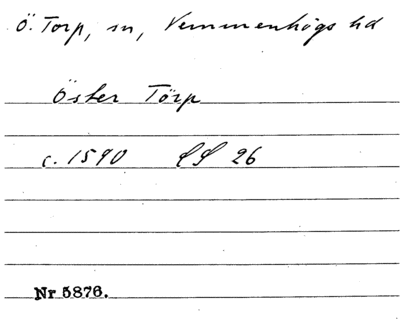 Ö. Torp, sn, Vemmenhögs hd
Öster Törp
c. 1590 SS 26
Nr 5876.